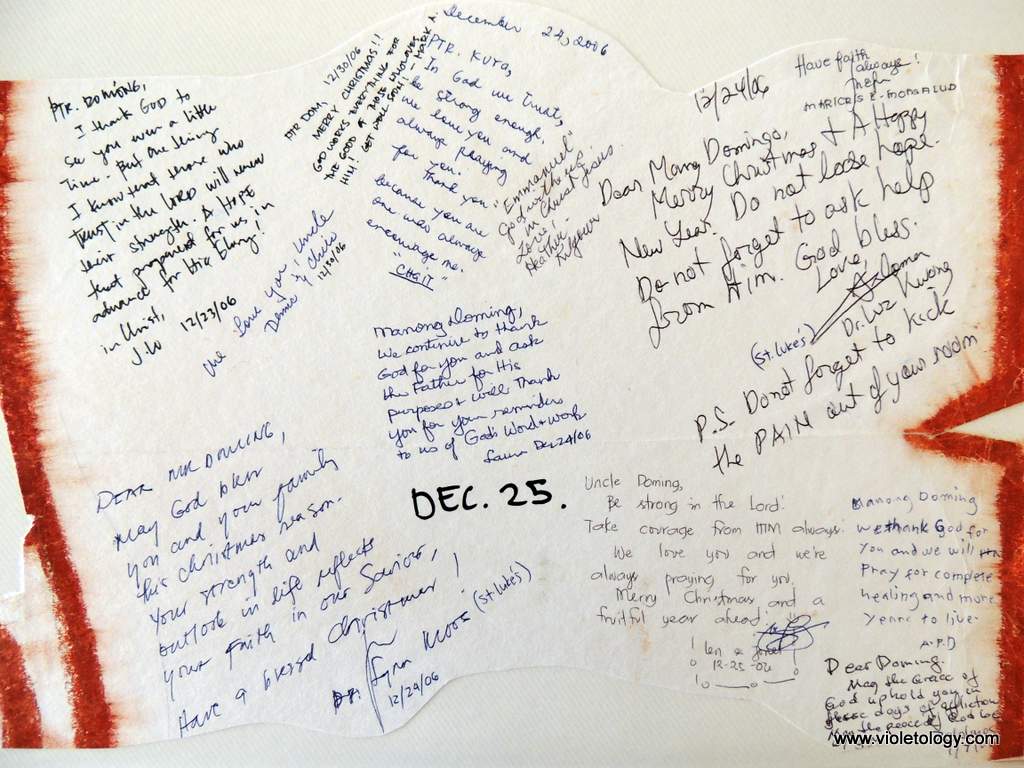 PTR. DOMING,
I thank GOD to
see you even a little
time. But one thing
I know that those who
trust in the LORD will renew
their strength. A HOPE
that prepared for us, in
advance for His Glory!
in Christ,
J.Lo 12/23/06
PTR DOM, 12/30/06
MERRY CHRISTMAS!!
GOD WORKS EVERYTHING FOR
THE GOOD OF THOSE WHO LOVES
HIM! GET WELL SOON! - MARK A.
We love you, Uncle
12/30/06
December 24, 2006
PTR. KUYA,
In God we trust,
be strong enough.
we love you and
always praying
for you.
Thank you
because you are
one who always
encourage me.
"CHGIT"
"Emmanuel"
God with us
in Christ Jesus
Love,
Heather
12/24/06
Have faith
always!
MARICRIS E. MONSALUD
Dear Manong Domingo,
Merry Christmas & A Happy
New Year. Do not lose hope.
Do not forget to ask help
from Him. God bless.
Love,
Dr. Luz Kwong
(St. Luke's)
P.S. Do not forget to kick
the PAIN out of your room
Manong Doming,
We continue to thank
God for you and ask
the Father for His
purpose & will. Thank
you for your reminders
to us of God's Word & work
Laura Dec 24/06
DEC. 25.
DEAR MR DOMING,
May God bless
you and your family
this christmas season.
Your strength and
outlook in life reflects
your faith in our Saviour,
Have a blessed Christmas!
Dr. (St. Luke's)
12/24/06
Uncle Doming,
Be strong in the Lord!
Take courage from HIM always.
We love you and we're
always praying for you.
Merry Christmas and a
fruitful year ahead!
12-25-06
Manong Doming
we thank God for
you and we will
pray for complete
healing and more
years to live.
A.P.D
Dear Doming.
May the Grace of
God uphold you in
these days of affliction
www.violetology.com